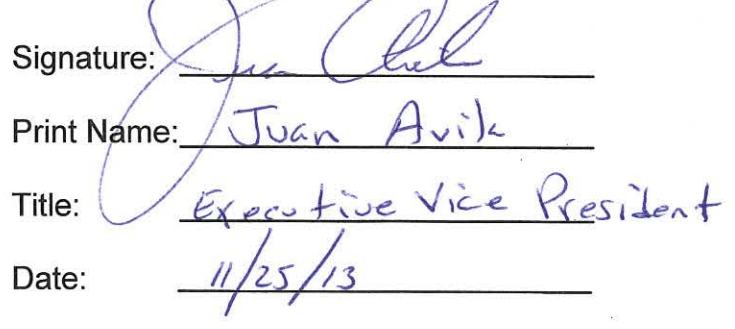 Signature: Juan
Print Name: Juan Avila
Title: Executive Vice President
Date: 11/25/13